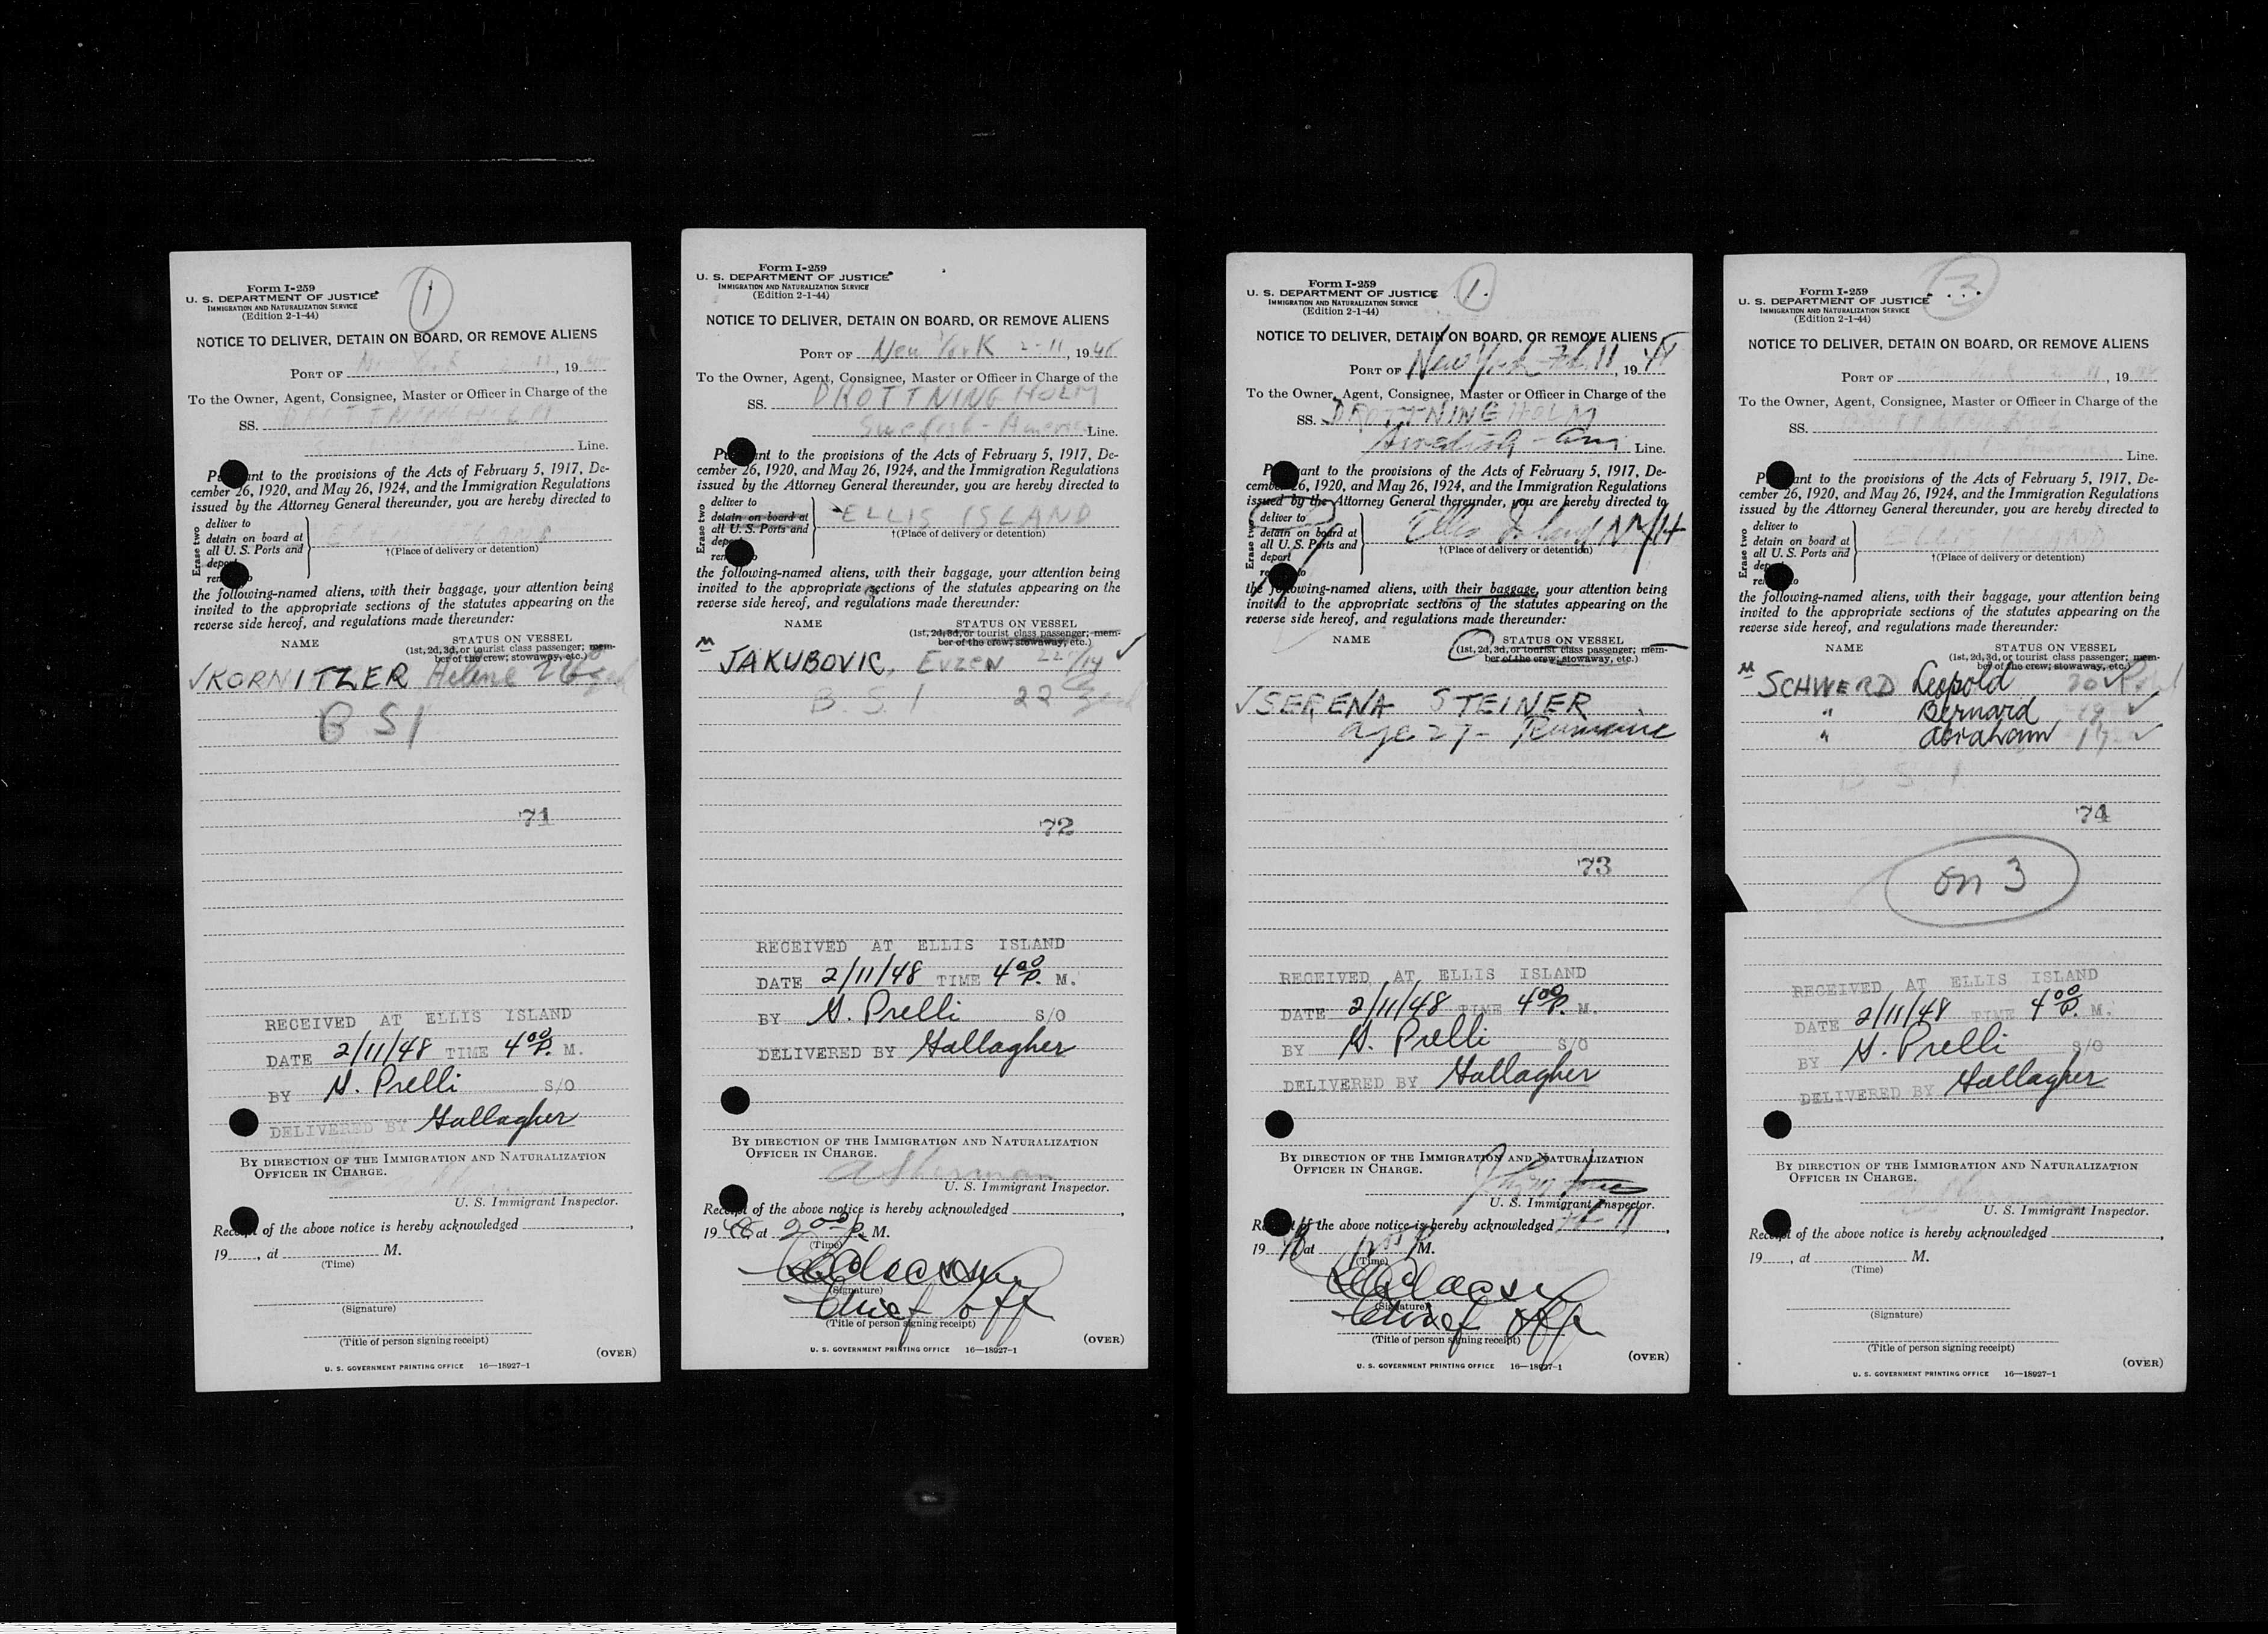 Form I-259
U. S. DEPARTMENT OF JUSTICE
IMMIGRATION AND NATURALIZATION SERVICE
(Edition 2-1-44)
1
NOTICE TO DELIVER, DETAIN ON BOARD, OR REMOVE ALIENS
PORT OF , 19
To the Owner, Agent, Consignee, Master or Officer in Charge of the
SS. DROTTNINGHOLM
Line.
Pursuant to the provisions of the Acts of February 5, 1917, De-
cember 26, 1920, and May 26, 1924, and the Immigration Regulations
issued by the Attorney General thereunder, you are hereby directed to
Erase two
deliver to
detain on board at
all U. S. Ports and
deport
remove to
†(Place of delivery or detention)
the following-named aliens, with their baggage, your attention being
invited to the appropriate sections of the statutes appearing on the
reverse side hereof, and regulations made thereunder:
NAME STATUS ON VESSEL
(1st, 2d, 3d, or tourist class passenger; mem-
ber of the crew; stowaway, etc.)
✓KORNITZER Helene 26
B S I
71
RECEIVED AT ELLIS ISLAND
DATE 2/11/48 TIME 4 00 P. M.
BY Prelli S/O
DELIVERED BY Gallagher
BY DIRECTION OF THE IMMIGRATION AND NATURALIZATION
OFFICER IN CHARGE.
U. S. Immigrant Inspector.
Receipt of the above notice is hereby acknowledged ,
19 , at M.
(Time)
(Signature)
(Title of person signing receipt)
(OVER)
U. S. GOVERNMENT PRINTING OFFICE 16—18927-1
Form I-259
U. S. DEPARTMENT OF JUSTICE
IMMIGRATION AND NATURALIZATION SERVICE
(Edition 2-1-44)
NOTICE TO DELIVER, DETAIN ON BOARD, OR REMOVE ALIENS
PORT OF New York 2-11, 1948
To the Owner, Agent, Consignee, Master or Officer in Charge of the
SS. DROTTNINGHOLM
Swedish-America Line.
Pursuant to the provisions of the Acts of February 5, 1917, De-
cember 26, 1920, and May 26, 1924, and the Immigration Regulations
issued by the Attorney General thereunder, you are hereby directed to
Erase two
deliver to
detain on board at
all U. S. Ports and
deport
remove to
ELLIS ISLAND
†(Place of delivery or detention)
the following-named aliens, with their baggage, your attention being
invited to the appropriate sections of the statutes appearing on the
reverse side hereof, and regulations made thereunder:
NAME STATUS ON VESSEL
(1st, 2d, 3d, or tourist class passenger; mem-
ber of the crew; stowaway, etc.)
M JAKUBOVIC, EVZEN ✓
B. S. I 22
72
RECEIVED AT ELLIS ISLAND
DATE 2/11/48 TIME 4 00 P. M.
BY Prelli S/O
DELIVERED BY Gallagher
BY DIRECTION OF THE IMMIGRATION AND NATURALIZATION
OFFICER IN CHARGE.
A Sherman
U. S. Immigrant Inspector.
Receipt of the above notice is hereby acknowledged ,
1948 at 2 00 P. M.
(Time)
(Signature)
Chief off
(Title of person signing receipt)
(OVER)
U. S. GOVERNMENT PRINTING OFFICE 16—18927-1
Form I-259
U. S. DEPARTMENT OF JUSTICE
IMMIGRATION AND NATURALIZATION SERVICE
(Edition 2-1-44)
1.
NOTICE TO DELIVER, DETAIN ON BOARD, OR REMOVE ALIENS
PORT OF New York Feb 11, 1948
To the Owner, Agent, Consignee, Master or Officer in Charge of the
SS. DROTTNINGHOLM
Swedish-Am Line.
Pursuant to the provisions of the Acts of February 5, 1917, De-
cember 26, 1920, and May 26, 1924, and the Immigration Regulations
issued by the Attorney General thereunder, you are hereby directed to
Erase two
deliver to
detain on board at
all U. S. Ports and
deport
remove to
Ellis Island NYH
†(Place of delivery or detention)
the following-named aliens, with their baggage, your attention being
invited to the appropriate sections of the statutes appearing on the
reverse side hereof, and regulations made thereunder:
NAME STATUS ON VESSEL
(1st, 2d, 3d, or tourist class passenger; mem-
ber of the crew; stowaway, etc.)
✓SERENA STEINER
age 27 -
73
RECEIVED AT ELLIS ISLAND
DATE 2/11/48 TIME 4 00 P. M.
BY Prelli S/O
DELIVERED BY Gallagher
BY DIRECTION OF THE IMMIGRATION AND NATURALIZATION
OFFICER IN CHARGE.
U. S. Immigrant Inspector.
Receipt of the above notice is hereby acknowledged Feb 11,
1948 at P M.
(Time)
(Signature)
Chief off
(Title of person signing receipt)
(OVER)
U. S. GOVERNMENT PRINTING OFFICE 16—18927-1
Form I-259
U. S. DEPARTMENT OF JUSTICE
IMMIGRATION AND NATURALIZATION SERVICE
(Edition 2-1-44)
3
NOTICE TO DELIVER, DETAIN ON BOARD, OR REMOVE ALIENS
PORT OF , 19
To the Owner, Agent, Consignee, Master or Officer in Charge of the
SS.
Line.
Pursuant to the provisions of the Acts of February 5, 1917, De-
cember 26, 1920, and May 26, 1924, and the Immigration Regulations
issued by the Attorney General thereunder, you are hereby directed to
Erase two
deliver to
detain on board at
all U. S. Ports and
deport
remove to
ELLIS ISLAND
†(Place of delivery or detention)
the following-named aliens, with their baggage, your attention being
invited to the appropriate sections of the statutes appearing on the
reverse side hereof, and regulations made thereunder:
NAME STATUS ON VESSEL
(1st, 2d, 3d, or tourist class passenger; mem-
ber of the crew; stowaway, etc.)
M SCHWERD Leopold 20 ✓
" Bernard 19 ✓
" Abraham 17 ✓
B S I
74
on 3
RECEIVED AT ELLIS ISLAND
DATE 2/11/48 TIME 4 00 P. M.
BY Prelli S/O
DELIVERED BY Gallagher
BY DIRECTION OF THE IMMIGRATION AND NATURALIZATION
OFFICER IN CHARGE.
U. S. Immigrant Inspector.
Receipt of the above notice is hereby acknowledged ,
19 , at M.
(Time)
(Signature)
(Title of person signing receipt)
(OVER)
U. S. GOVERNMENT PRINTING OFFICE 16—18927-1